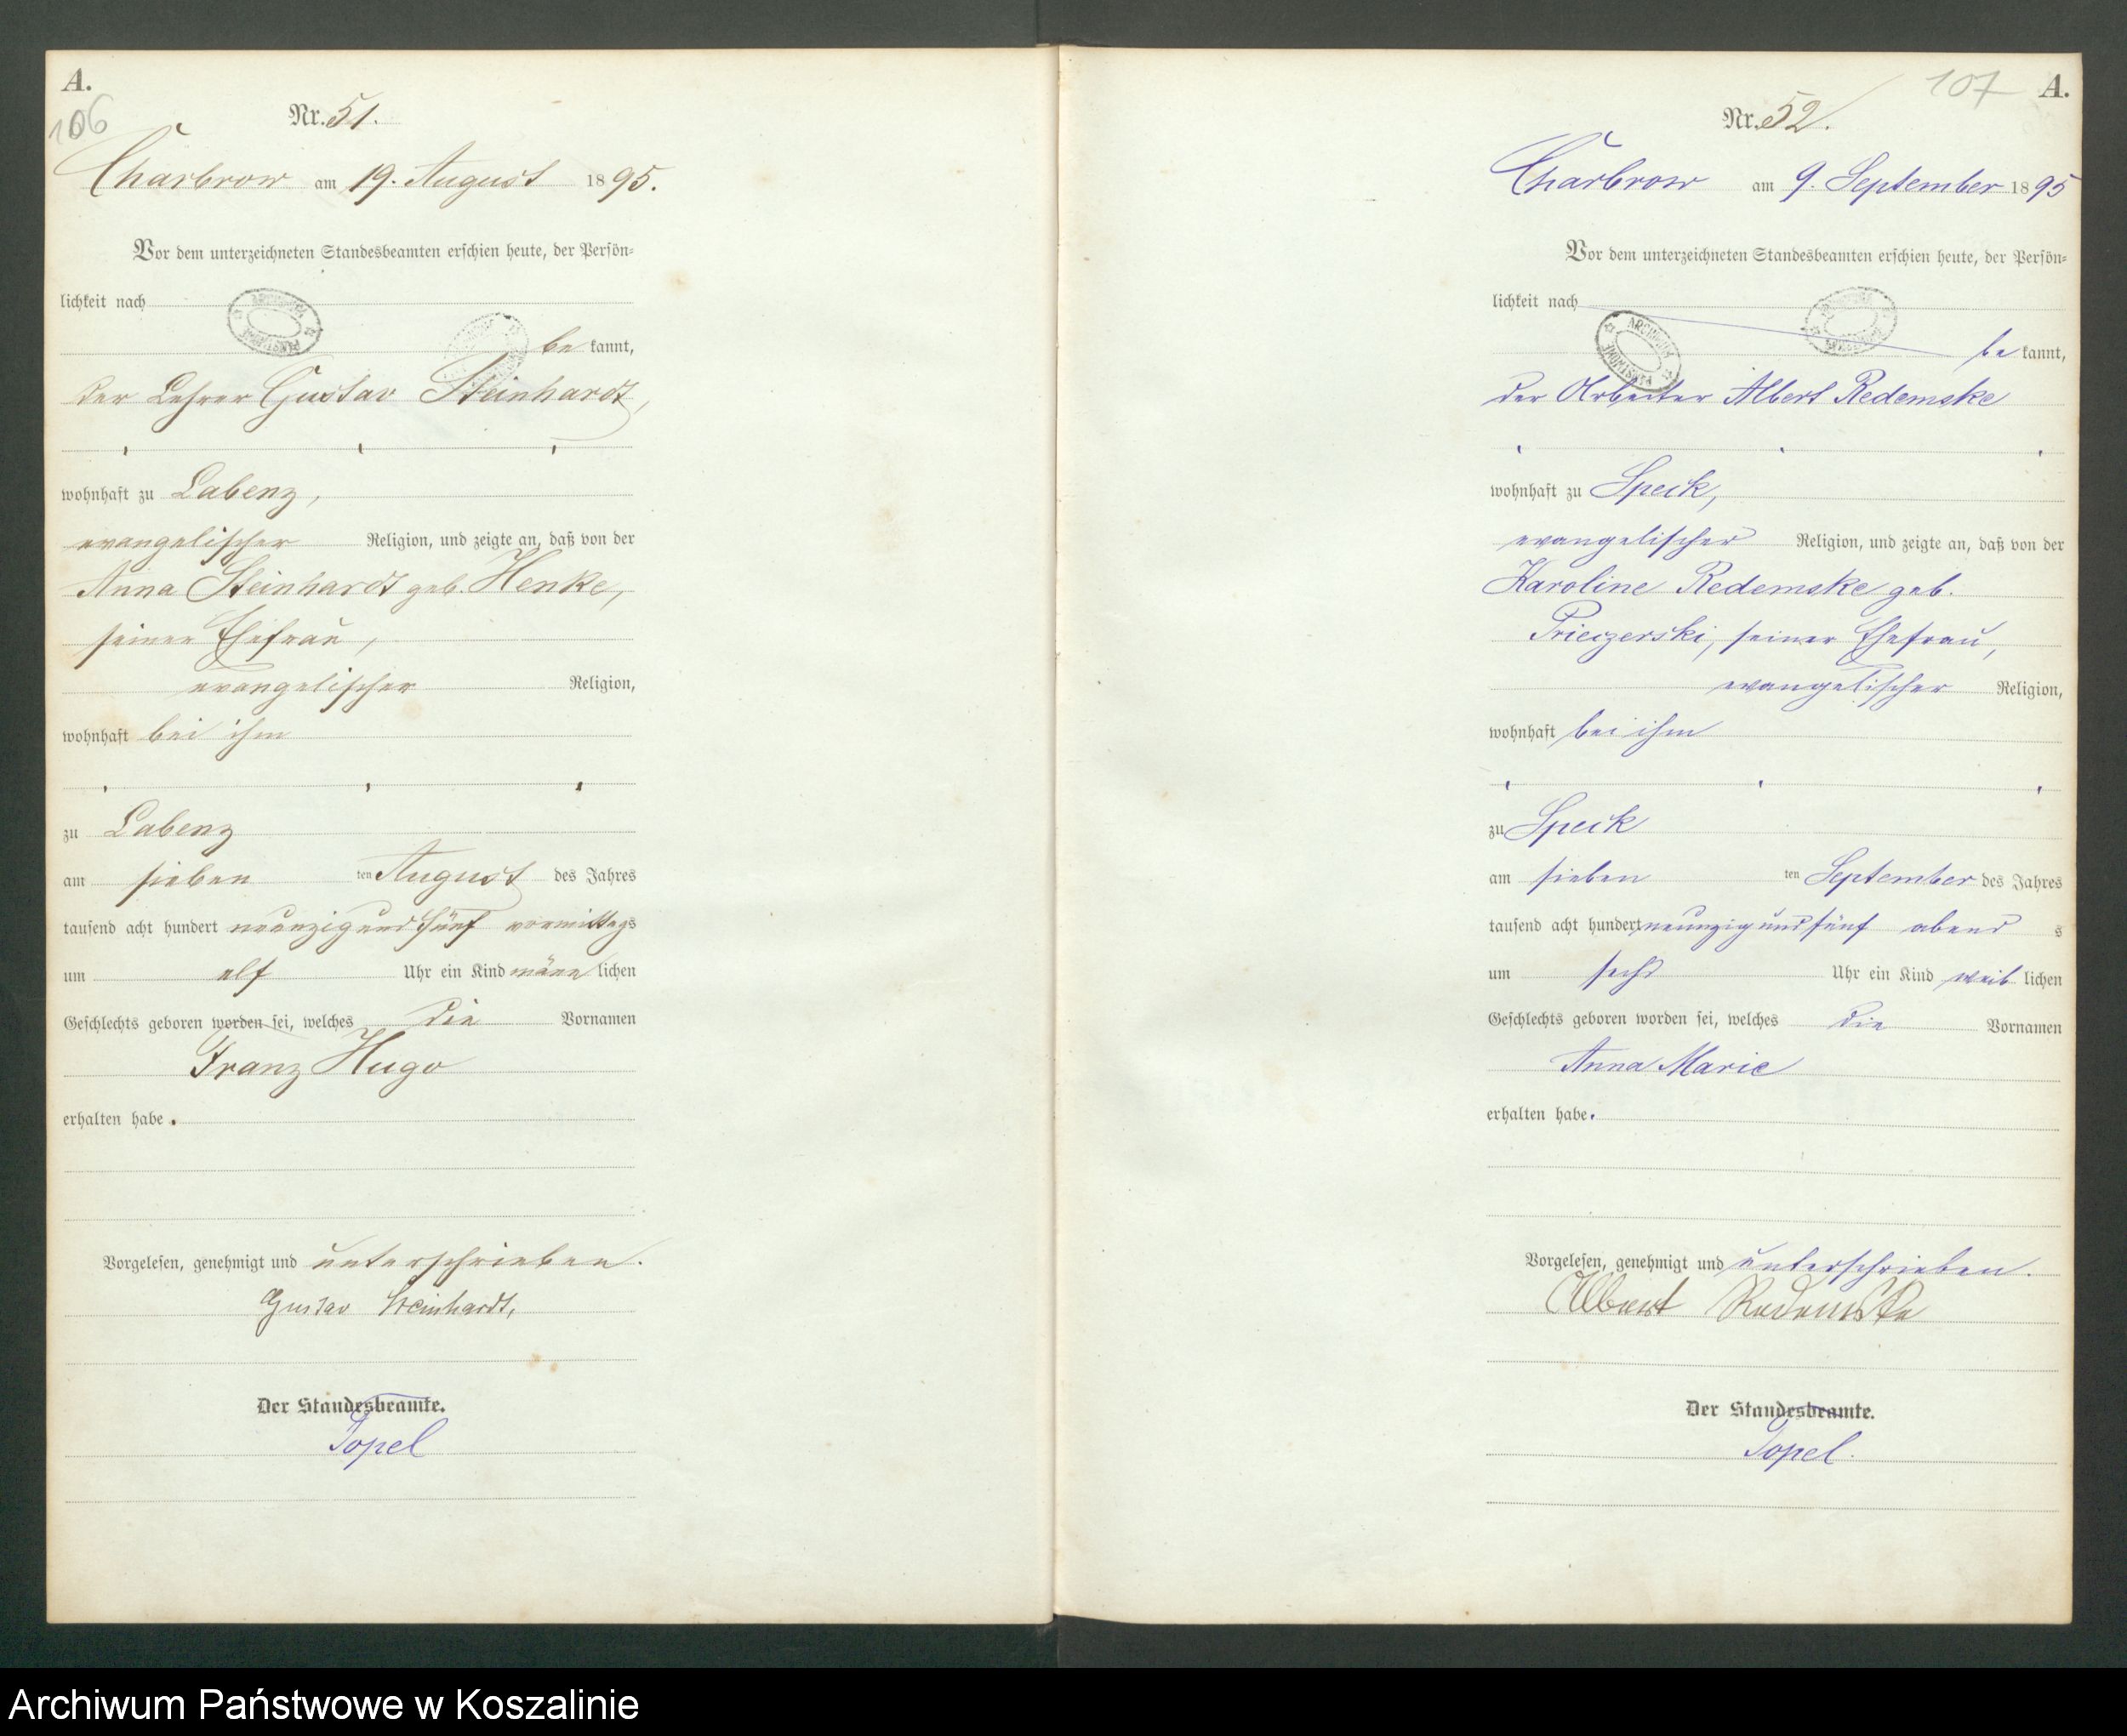 A.
106
Nr. 51.
Charbrow am 19. August 1895.
Vor dem unterzeichneten Standesbeamten erschien heute, der Persön-
lichkeit nach
be kannt,
der Lehrer Gustav Steinhardt,
wohnhaft zu Labenz,
evangelischer Religion, und zeigte an, daß von der
Anna Steinhardt geb. Henke,
seiner Ehefrau,
evangelischer Religion,
wohnhaft bei ihm
zu Labenz
am sieben ten August des Jahres
tausend acht hundert neunzig und fünf vormittags
um elf Uhr ein Kind männ lichen
Geschlechts geboren worden sei, welches die Vornamen
Franz Hugo
erhalten habe.
Vorgelesen, genehmigt und unterschrieben.
Gustav Steinhardt,
Der Standesbeamte.
Topel
107 A.
Nr. 52.
Charbrow am 9. September 1895
Vor dem unterzeichneten Standesbeamten erschien heute, der Persön-
lichkeit nach
ARCHIWUM PAŃSTWOWE
be kannt,
der Arbeiter Albert Redemske
wohnhaft zu Speck,
evangelischer Religion, und zeigte an, daß von der
Karoline Redemske geb.
seiner Ehefrau,
evangelischer Religion,
wohnhaft bei ihm
zu Speck
am sieben ten September des Jahres
tausend acht hundert neunzig und fünf abend s
um sechs Uhr ein Kind weib lichen
Geschlechts geboren worden sei, welches die Vornamen
Anna Marie
erhalten habe.
Vorgelesen, genehmigt und unterschrieben.
Albert Redemske
Der Standesbeamte.
Topel.
Archiwum Państwowe w Koszalinie